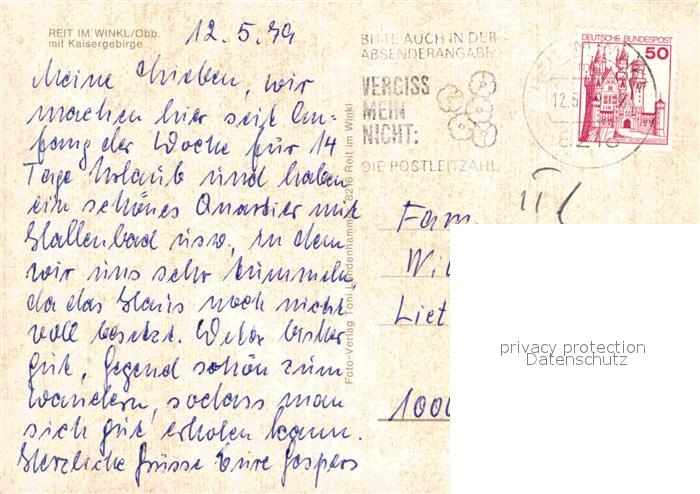 REIT IM WINKL/Obb.
mit Kaisergebirge
12.5.79
Meine Lieben, wir
machen hier seit An-
fang der Woche für 14
Tage Urlaub und haben
ein schönes Quartier mit
Hallenbad usw., in dem
wir uns sehr tummeln,
da das Haus noch nicht
voll besetzt. Wetter bisher
gut, Gegend schön zum
Wandern, sodass man
sich gut erholen kann.
Herzliche Grüsse Eure Gaspers
Foto-Verlag Toni 8216 Reit im Winkl
BITTE AUCH IN DER
ABSENDERANGABE
VERGISS
MEIN
NICHT:
DIE POSTLEITZAHL
12.5
8216
DEUTSCHE BUNDESPOST
50
Fam.
Wil
Liet
1000
privacy protection
Datenschutz